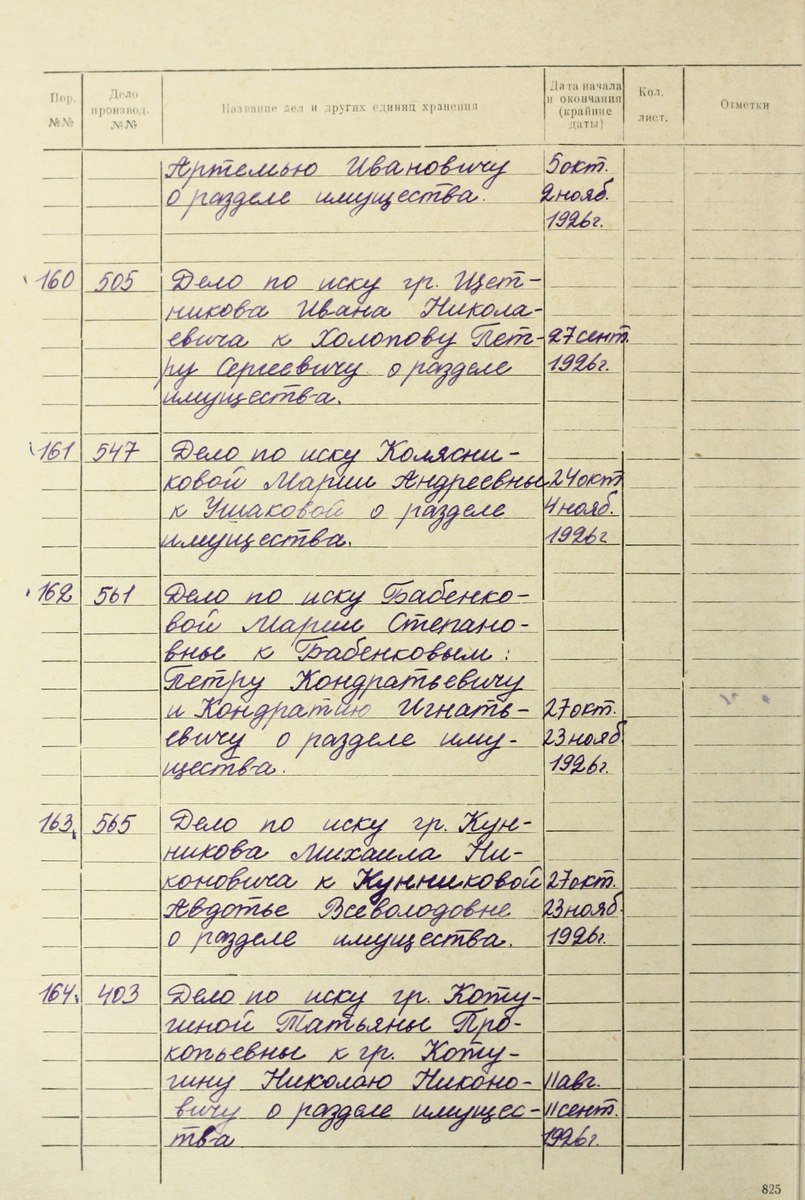 Пор. №№ Дело производ. №№ Название дел и других единиц хранения Дата начала и окончания (крайние даты) Кол. лист. Отметки
Артемью Ивановичу 5 окт.
о разделе имущества. 2 нояб.
1926г.
160 505 Дело по иску гр. Щет-
никова Ивана Никола-
евича к Холопову Пет- 27 сент.
ру Сергеевичу о разделе 1926г.
имущества.
161 547 Дело по иску Колясни-
ковой Марии Андреевны 24 окт
к Ушаковой о разделе 4 нояб.
имущества. 1926г
162 561 Дело по иску Бабенко-
вой Марии Степано-
вны к Бабенковым:
Петру Кондратьевичу
и Кондратию Игнать- 27 окт.
евичу о разделе иму- 23 нояб.
щества. 1926г.
163. 565 Дело по иску гр. Кун-
никова Михаила Ни-
коновича к Кунниковой 27 окт.
Авдотье Всеволодовне 23 нояб.
о разделе имущества. 1926г.
164. 403 Дело по иску гр. Коту-
гиной Татьяны Про-
копьевны к гр. Коту-
гину Николаю Никоно- 11 авг.
вичу о разделе имущес- 11 сент.
тва 1926г.
825